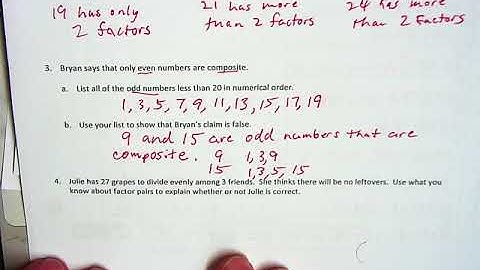 19 has only 21 has more 24 has more
2 factors than 2 factors than 2 factors
3. Bryan says that only even numbers are composite.
a. List all of the odd numbers less than 20 in numerical order.
1, 3, 5, 7, 9, 11, 13, 15, 17, 19
b. Use your list to show that Bryan's claim is false.
9 and 15 are odd numbers that are
composite. 9 1, 3, 9
15 1, 3, 5, 15
4. Julie has 27 grapes to divide evenly among 3 friends. She thinks there will be no leftovers. Use what you
know about factor pairs to explain whether or not Julie is correct.